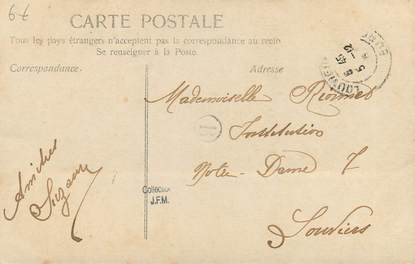 6€
CARTE POSTALE
Tous les pays étrangers n'acceptent pas la correspondance au recto
Se renseigner à la Poste.
Correspondance
Adresse
LOUVIERS
EURE
Mademoiselle
Institution
Notre-Dame
Louviers
Amitiés
Suzanne
Collection
J.F.M.